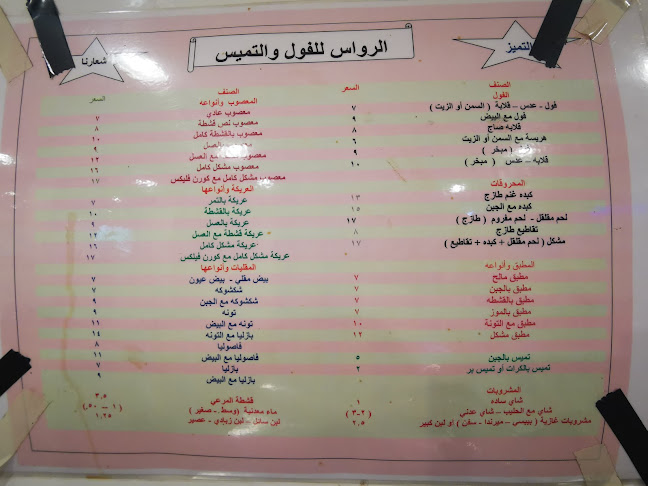 التميز
الرواس للفول والتميس
شعارنا
الصنف السعر
الفول
فول - عدس - قلابة ( السمن أو الزيت ) ٧
فول مع البيض ٩
قلابه صاج ٨
هريسة مع السمن أو الزيت ٦
( مبخر ) ٩
قلابه - عدس ( مبخر ) ١٠
المحروقات
كبده غنم طازج ١٣
كبده مع الجبن ١٥
لحم مقلقل - لحم مفروم ( طازج ) ١٧
تقاطيع طازج ٨
مشكل ( لحم مقلقل + كبده + تقاطيع ) ١٧
المطبق وأنواعه
مطبق مالح ٧
مطبق بالجبن ٧
مطبق بالقشطه ٧
مطبق بالموز ٧
مطبق مع التونة ١٠
مطبق مشكل ١٢
تميس بالجبن ٥
تميس بالكرات أو تميس بر ٢
المشروبات
شاي ساده ١
شاي مع الحليب - شاي عدني ( ٢-٣ )
مشروبات غازية ( بيبسي - ميرندا - سفن ) او لبن كبير ٢.٥
الصنف السعر
المعصوب وأنواعه
معصوب عادي ٧
معصوب نص قشطة ٨
معصوب بالقشطة كامل ١٠
معصوب بالعسل ٩
معصوب قشطة مع العسل ١٢
معصوب مشكل كامل ١٦
معصوب مشكل كامل مع كورن فليكس ١٧
العريكة وأنواعها
عريكة بالتمر ٧
عريكة بالقشطة ١٠
عريكة بالعسل ٩
عريكة قشطة مع العسل ١٢
عريكة مشكل كامل ١٦
عريكة مشكل كامل مع كورن فليكس ١٧
المقليات وأنواعها
بيض مقلي - بيض عيون ٧
شكشوكه ٧
شكشوكه مع الجبن ٩
تونه ٩
تونه مع البيض ١١
بازليا مع التونه ١٤
فاصوليا ٨
فاصوليا مع البيض ١١
بازليا ٧
بازليا مع البيض ٩
قشطة المرعي ٣.٥
ماء معدنية (وسط - صغير )
لبن سائل - لبن زبادي - عصير ١,٢٥